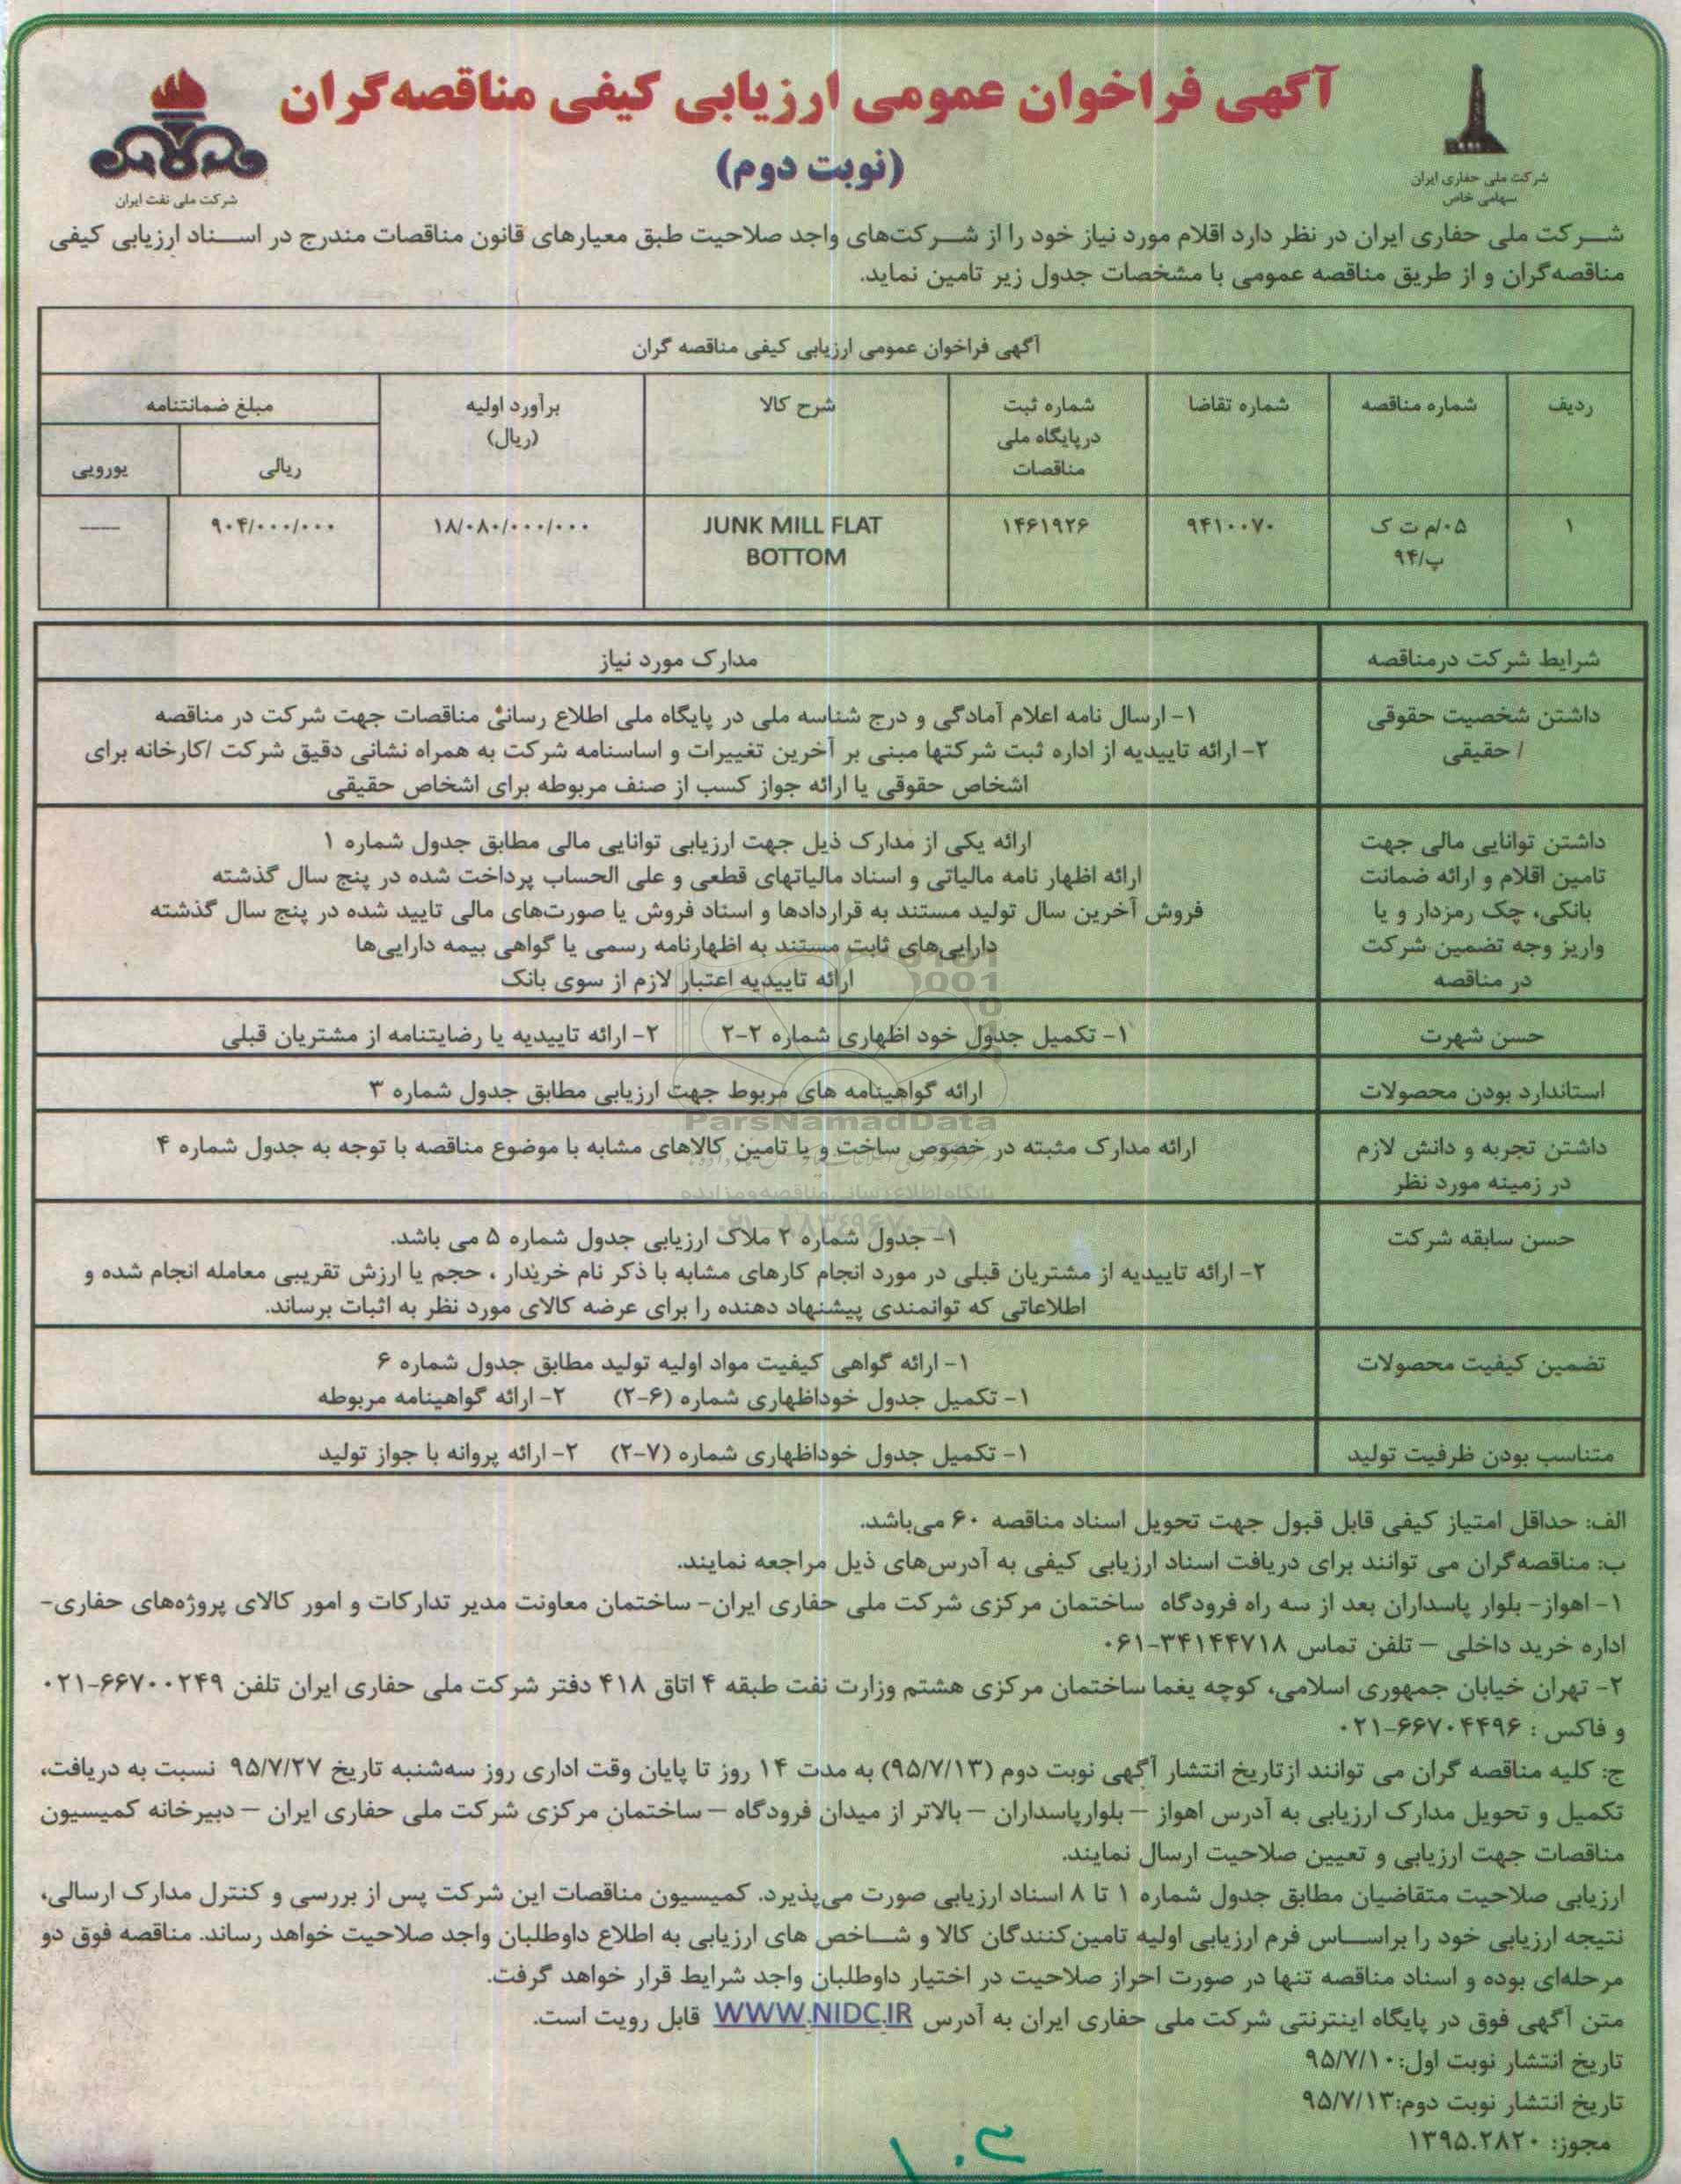 آگهی فراخوان عمومی ارزیابی کیفی مناقصه‌گران
(نوبت دوم)
شرکت ملی حفاری ایران
سهامی خاص
شرکت ملی نفت ایران
شرکت ملی حفاری ایران در نظر دارد اقلام مورد نیاز خود را از شرکت‌های واجد صلاحیت طبق معیارهای قانون مناقصات مندرج در اسناد ارزیابی کیفی
مناقصه‌گران و از طریق مناقصه عمومی با مشخصات جدول زیر تامین نماید.
آگهی فراخوان عمومی ارزیابی کیفی مناقصه گران
ردیف شماره مناقصه شماره تقاضا شماره ثبت شرح کالا برآورد اولیه مبلغ ضمانتنامه
درپایگاه ملی (ریال)
مناقصات ریالی یورویی
۱ ۰۵/م ت ک ۹۴۱۰۰۷۰ ۱۴۶۱۹۲۶ JUNK MILL FLAT ۱۸/۰۸۰/۰۰۰/۰۰۰ ۹۰۴/۰۰۰/۰۰۰ ----
پ/۹۴ BOTTOM
شرایط شرکت درمناقصه مدارک مورد نیاز
داشتن شخصیت حقوقی ۱- ارسال نامه اعلام آمادگی و درج شناسه ملی در پایگاه ملی اطلاع رسانی مناقصات جهت شرکت در مناقصه
/ حقیقی ۲- ارائه تاییدیه از اداره ثبت شرکتها مبنی بر آخرین تغییرات و اساسنامه شرکت به همراه نشانی دقیق شرکت /کارخانه برای
اشخاص حقوقی یا ارائه جواز کسب از صنف مربوطه برای اشخاص حقیقی
داشتن توانایی مالی جهت ارائه یکی از مدارک ذیل جهت ارزیابی توانایی مالی مطابق جدول شماره ۱
تامین اقلام و ارائه ضمانت ارائه اظهار نامه مالیاتی و اسناد مالیاتهای قطعی و علی الحساب پرداخت شده در پنج سال گذشته
بانکی، چک رمزدار و یا فروش آخرین سال تولید مستند به قراردادها و اسناد فروش یا صورت‌های مالی تایید شده در پنج سال گذشته
واریز وجه تضمین شرکت دارایی‌های ثابت مستند به اظهارنامه رسمی یا گواهی بیمه دارایی‌ها
در مناقصه ارائه تاییدیه اعتبار لازم از سوی بانک
حسن شهرت ۱- تکمیل جدول خود اظهاری شماره ۲-۲ ۲- ارائه تاییدیه یا رضایتنامه از مشتریان قبلی
استاندارد بودن محصولات ارائه گواهینامه های مربوط جهت ارزیابی مطابق جدول شماره ۳
ParsNamadData
داشتن تجربه و دانش لازم ارائه مدارک مثبته در خصوص ساخت و یا تامین کالاهای مشابه با موضوع مناقصه با توجه به جدول شماره ۴
در زمینه مورد نظر
پایگاه اطلاع رسانی مناقصه و مزایده
۰۲۱-۸۸۳۴۹۶۷۰-۵
حسن سابقه شرکت ۱- جدول شماره ۲ ملاک ارزیابی جدول شماره ۵ می باشد.
۲- ارائه تاییدیه از مشتریان قبلی در مورد انجام کارهای مشابه با ذکر نام خریدار ، حجم یا ارزش تقریبی معامله انجام شده و
اطلاعاتی که توانمندی پیشنهاد دهنده را برای عرضه کالای مورد نظر به اثبات برساند.
تضمین کیفیت محصولات ۱- ارائه گواهی کیفیت مواد اولیه تولید مطابق جدول شماره ۶
۱- تکمیل جدول خوداظهاری شماره (۶-۲) ۲- ارائه گواهینامه مربوطه
متناسب بودن ظرفیت تولید ۱- تکمیل جدول خوداظهاری شماره (۷-۲) ۲- ارائه پروانه با جواز تولید
الف: حداقل امتیاز کیفی قابل قبول جهت تحویل اسناد مناقصه ۶۰ می‌باشد.
ب: مناقصه‌گران می توانند برای دریافت اسناد ارزیابی کیفی به آدرس‌های ذیل مراجعه نمایند.
۱- اهواز- بلوار پاسداران بعد از سه راه فرودگاه ساختمان مرکزی شرکت ملی حفاری ایران- ساختمان معاونت مدیر تدارکات و امور کالای پروژه‌های حفاری-
اداره خرید داخلی – تلفن تماس ۳۴۱۴۴۷۱۸-۰۶۱
۲- تهران خیابان جمهوری اسلامی، کوچه یغما ساختمان مرکزی هشتم وزارت نفت طبقه ۴ اتاق ۴۱۸ دفتر شرکت ملی حفاری ایران تلفن ۶۶۷۰۰۲۴۹-۰۲۱
و فاکس : ۶۶۷۰۴۴۹۶-۰۲۱
ج: کلیه مناقصه گران می توانند ازتاریخ انتشار آگهی نوبت دوم (۹۵/۷/۱۳) به مدت ۱۴ روز تا پایان وقت اداری روز سه‌شنبه تاریخ ۹۵/۷/۲۷ نسبت به دریافت،
تکمیل و تحویل مدارک ارزیابی به آدرس اهواز – بلوارپاسداران – بالاتر از میدان فرودگاه – ساختمان مرکزی شرکت ملی حفاری ایران – دبیرخانه کمیسیون
مناقصات جهت ارزیابی و تعیین صلاحیت ارسال نمایند.
ارزیابی صلاحیت متقاضیان مطابق جدول شماره ۱ تا ۸ اسناد ارزیابی صورت می‌پذیرد. کمیسیون مناقصات این شرکت پس از بررسی و کنترل مدارک ارسالی،
نتیجه ارزیابی خود را براساس فرم ارزیابی اولیه تامین‌کنندگان کالا و شاخص های ارزیابی به اطلاع داوطلبان واجد صلاحیت خواهد رساند. مناقصه فوق دو
مرحله‌ای بوده و اسناد مناقصه تنها در صورت احراز صلاحیت در اختیار داوطلبان واجد شرایط قرار خواهد گرفت.
متن آگهی فوق در پایگاه اینترنتی شرکت ملی حفاری ایران به آدرس WWW.NIDC.IR قابل رویت است.
تاریخ انتشار نوبت اول:۹۵/۷/۱۰
تاریخ انتشار نوبت دوم:۹۵/۷/۱۳
مجوز: ۱۳۹۵.۲۸۲۰